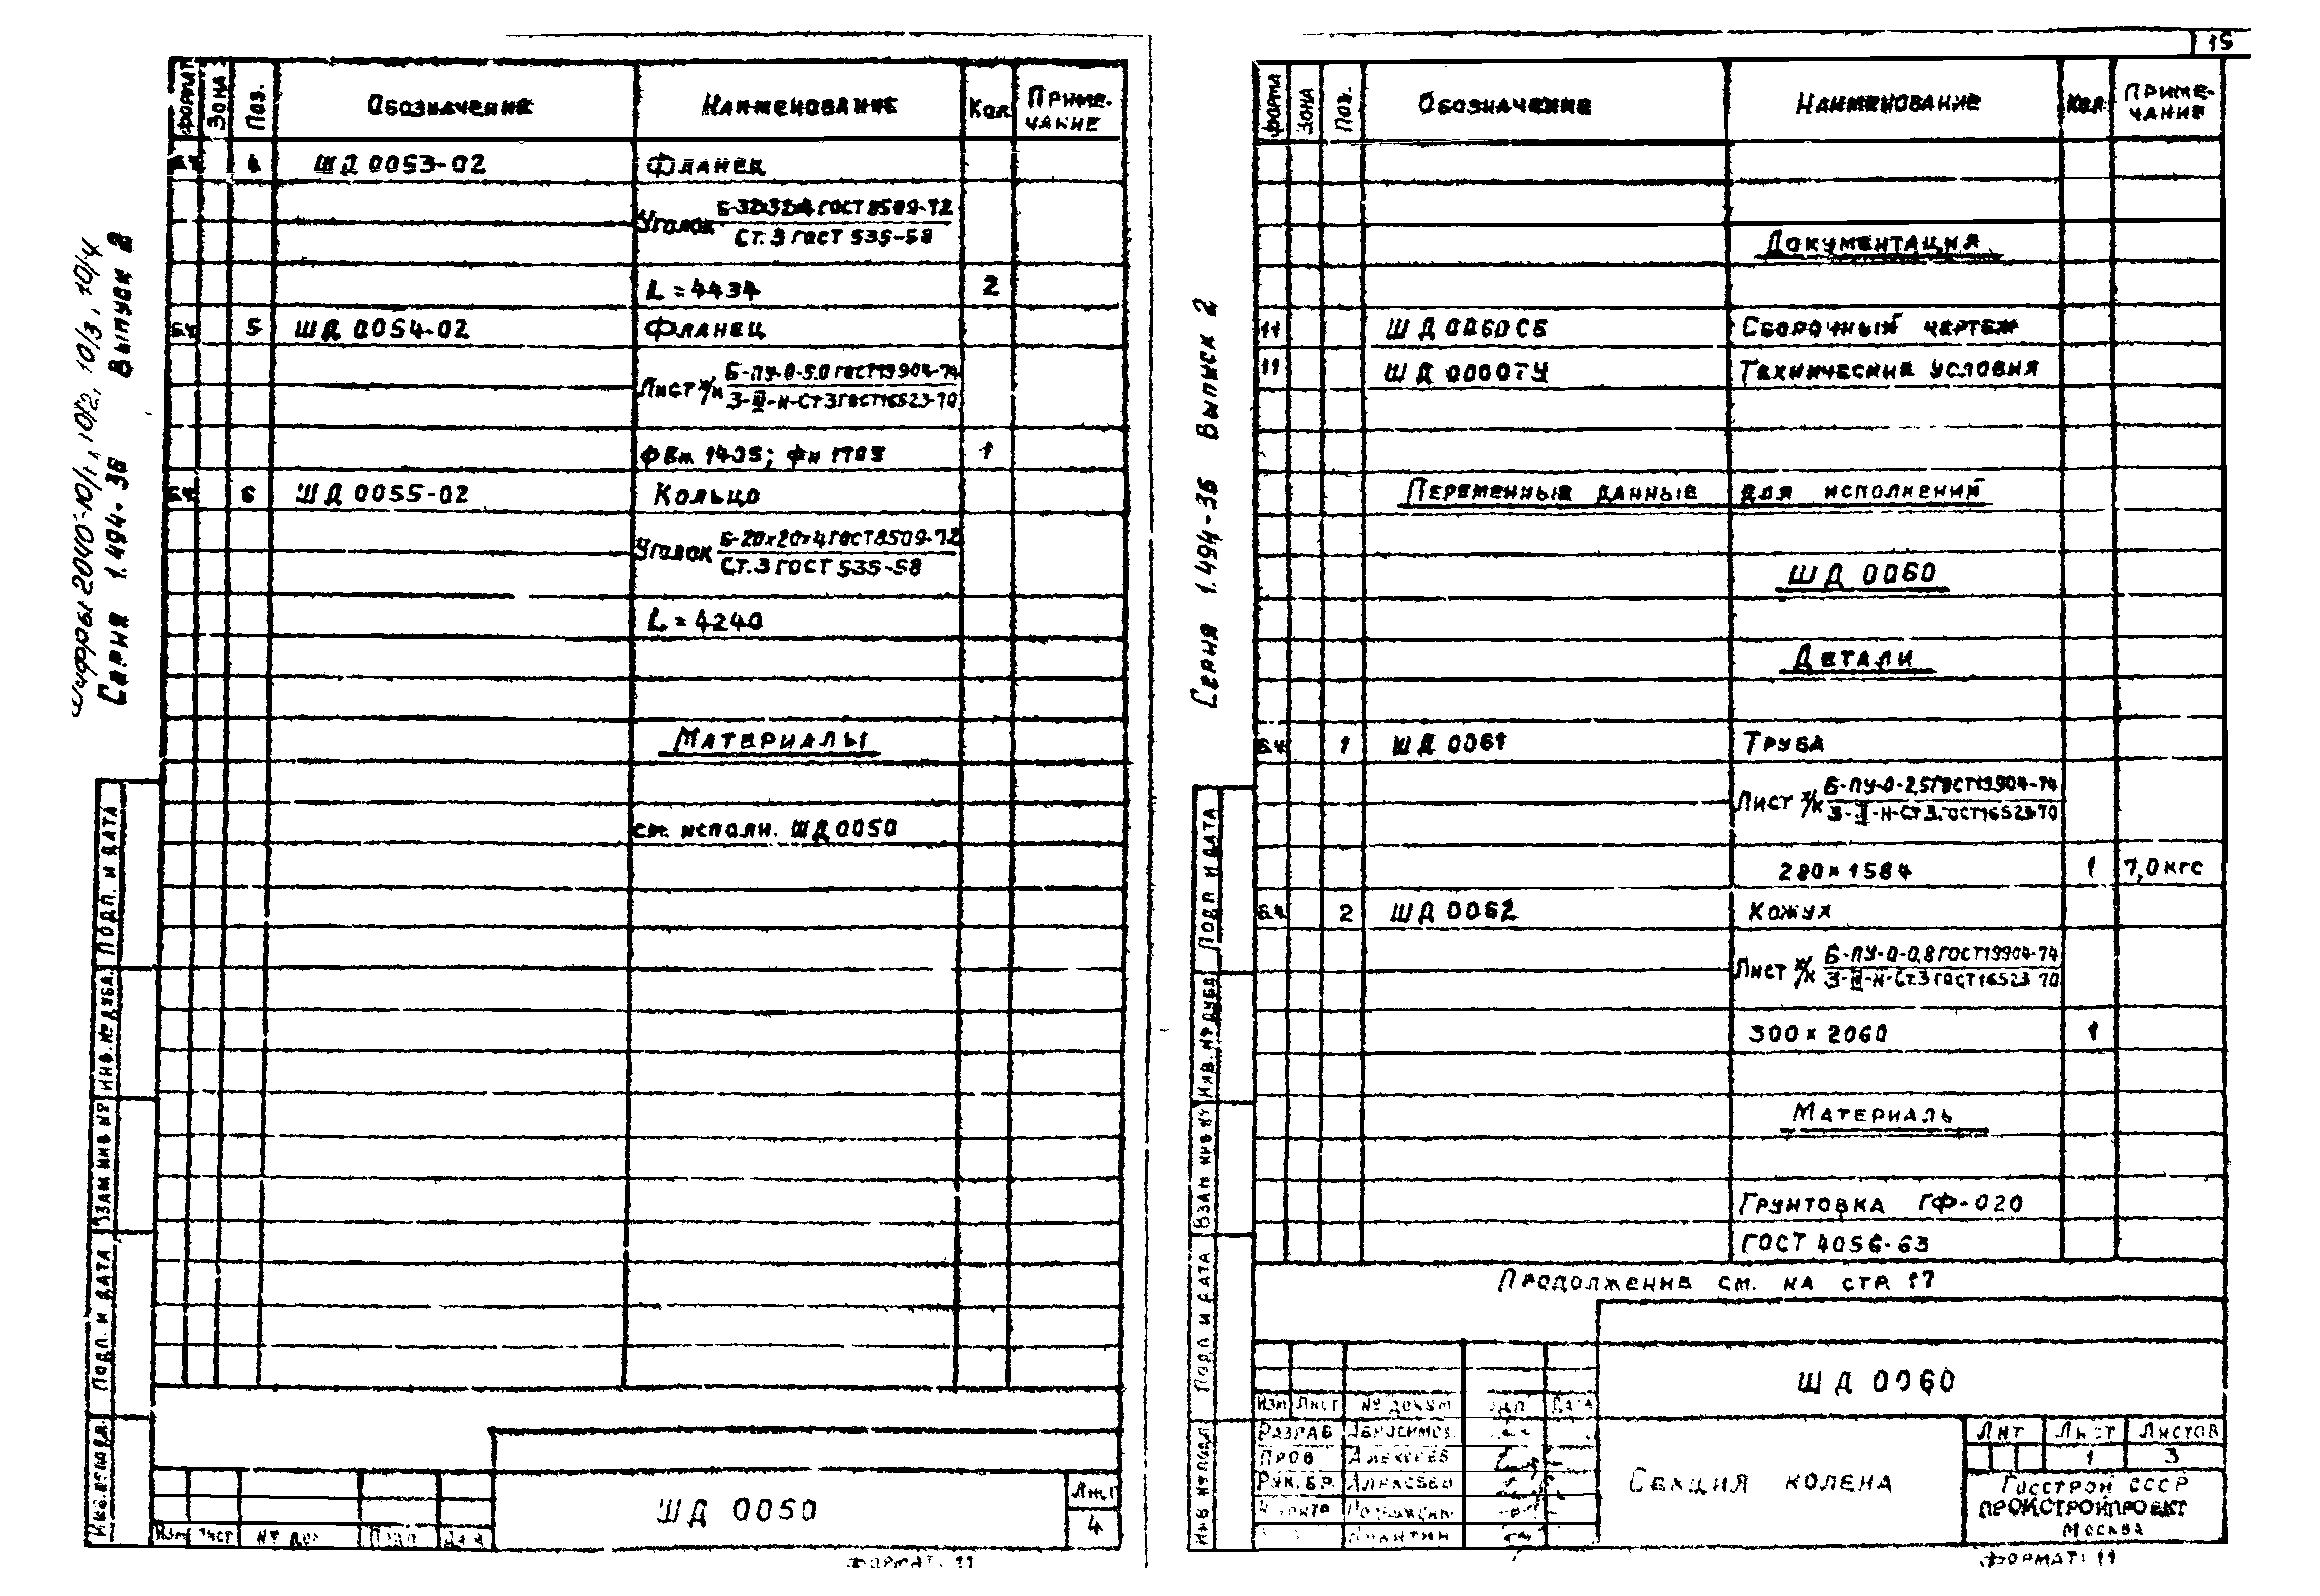 Формат Зона Поз. Обозначение Наименование Кол. Приме-
чание
Б.ч. 4 ШД 0053-02 Фланец
Уголок Б-32х32х4 ГОСТ 8509-72
Ст.3 ГОСТ 535-58
L = 4434 2
Б.ч. 5 ШД 0054-02 Фланец
Лист х/к Б-ПУ-0-5.0 ГОСТ 19904-74
3-III-Н-Ст3 ГОСТ 16523-70
1
Б.ч. 6 ШД 0055-02 Кольцо
Уголок Б-20х20х4 ГОСТ 8509-72
Ст.3 ГОСТ 535-58
L = 4240
Материалы
см. исполн. ШД 0050
Шифры 2040-10/1, 10/2, 10/3, 10/4
Серия 1.494-36 Выпуск 2
Подп. и дата
Инв. № дубл.
Взам инв №
Подп. и дата
Инв. № подл.
Изм Лист № док Подп Дата
ШД 0050
Лист
4
Формат: 11
15
Форма Зона Поз. Обозначение Наименование Кол Приме-
чание
Документация
11 ШД 0060СБ Сборочный чертеж
11 ШД 0000ТУ Технические условия
Переменные данные для исполнений
ШД 0060
Детали
Б.ч. 1 ШД 0061 Труба
Лист х/к Б-ПУ-0-2,5 ГОСТ 19904-74
ГОСТ 16523-70
280 х 1584 1 7,0 кгс
Б.ч. 2 ШД 0062 Кожух
Лист х/к Б-ПУ-0-0,8 ГОСТ 19904-74
3-III-Н-Ст.3 ГОСТ 16523-70
300 х 2060 1
Материалы
Грунтовка ГФ-020
ГОСТ 4056-63
Продолжение см. на стр 17
Серия 1.494-36 Выпуск 2
Подп и дата
Инв. № дубл
Взам инв №
Подп и дата
Инв № подл
Изм Лист № докум Подп Дата
Разраб
Пров Алексеев
Рук. бр. Алексеев
ШД 0060
Секция колена
Лит Лист Листов
1 3
Госстрой СССР
ПРОМСТРОЙПРОЕКТ
Москва
Формат: 11